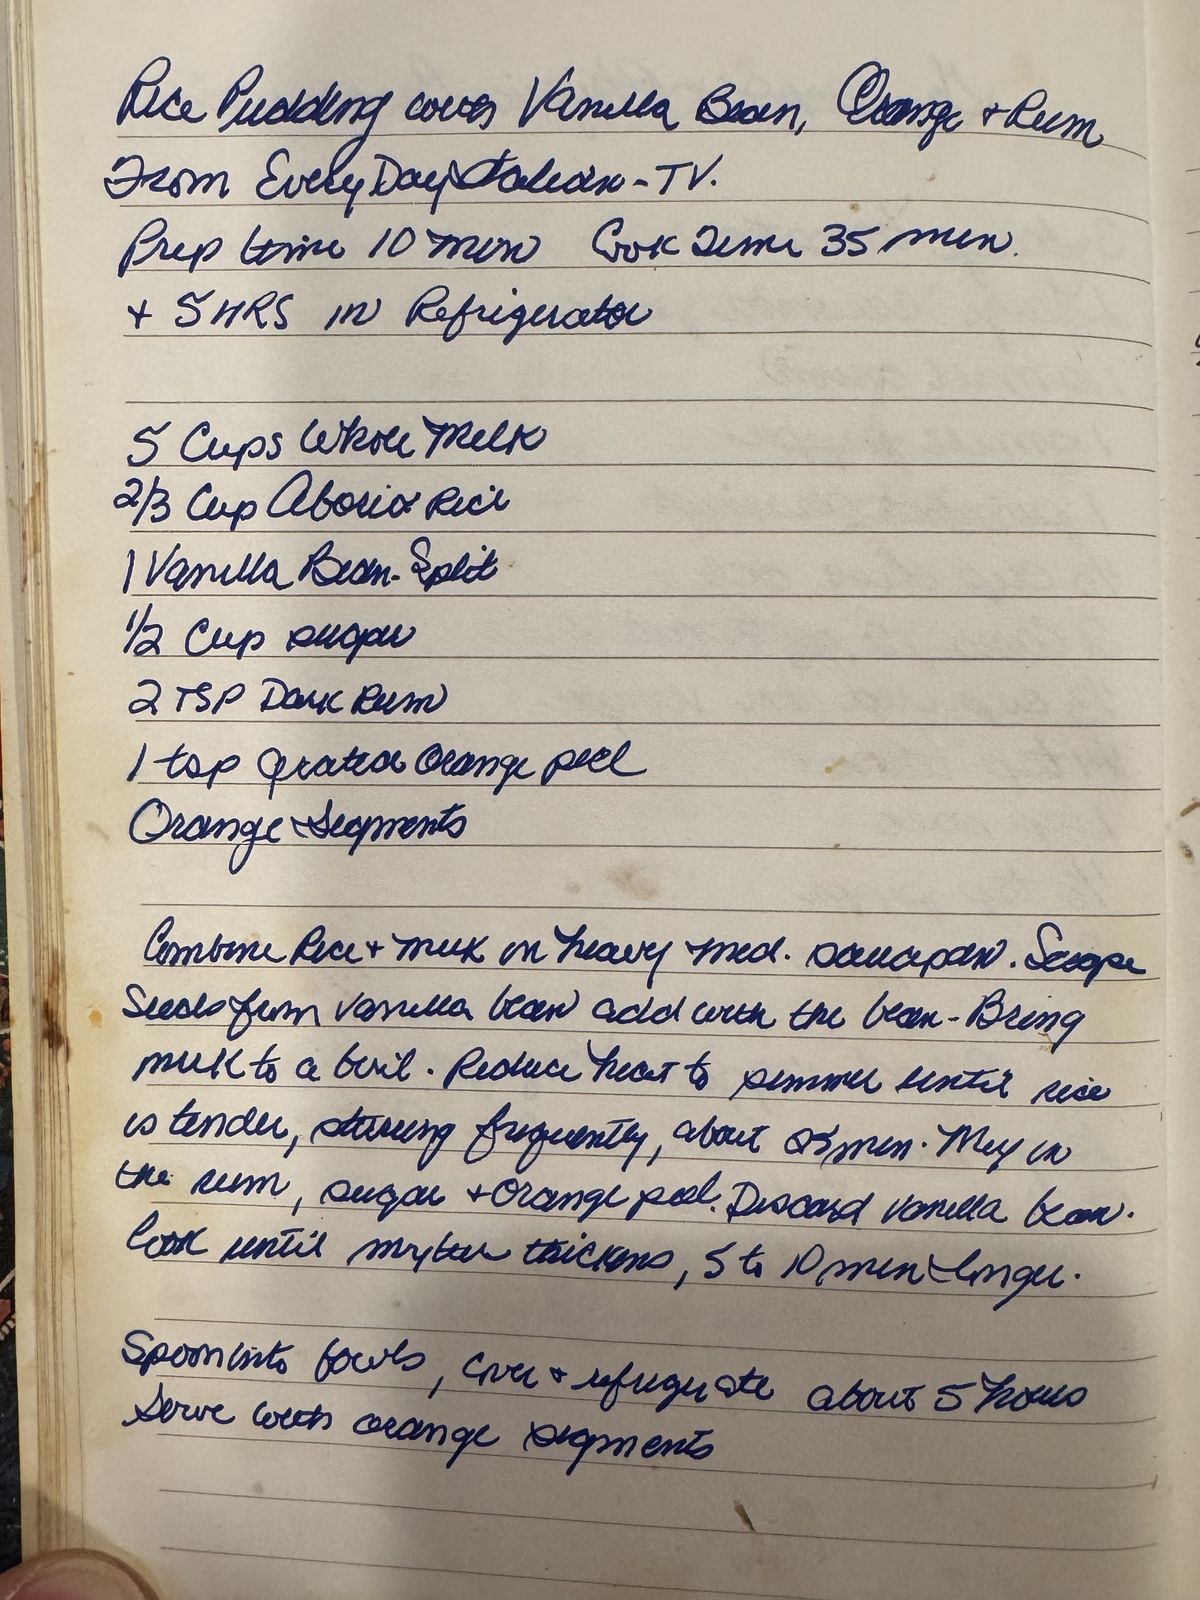 Rice Pudding with Vanilla Bean, Orange + Rum
From EveryDay Italian - TV.
Prep time 10 min Cook Time 35 min.
+ 5 HRS in Refrigerator
5 Cups Whole Milk
2/3 Cup Aborio Rice
1 Vanilla Bean - Split
1/2 Cup sugar
2 TSP Dark Rum
1 tsp grated Orange peel
Orange Segments
Combine Rice + milk in heavy med. saucepan. Scrape
Seeds from vanilla bean add with the bean - Bring
milk to a boil. Reduce heat to simmer until rice
is tender, stirring frequently, about 25 min. Mix in
the rum, sugar + orange peel. Discard vanilla bean.
Cook until mixture thickens, 5 to 10 min longer.
Spoon into bowls, cover + refrigerate about 5 hours
Serve with orange segments